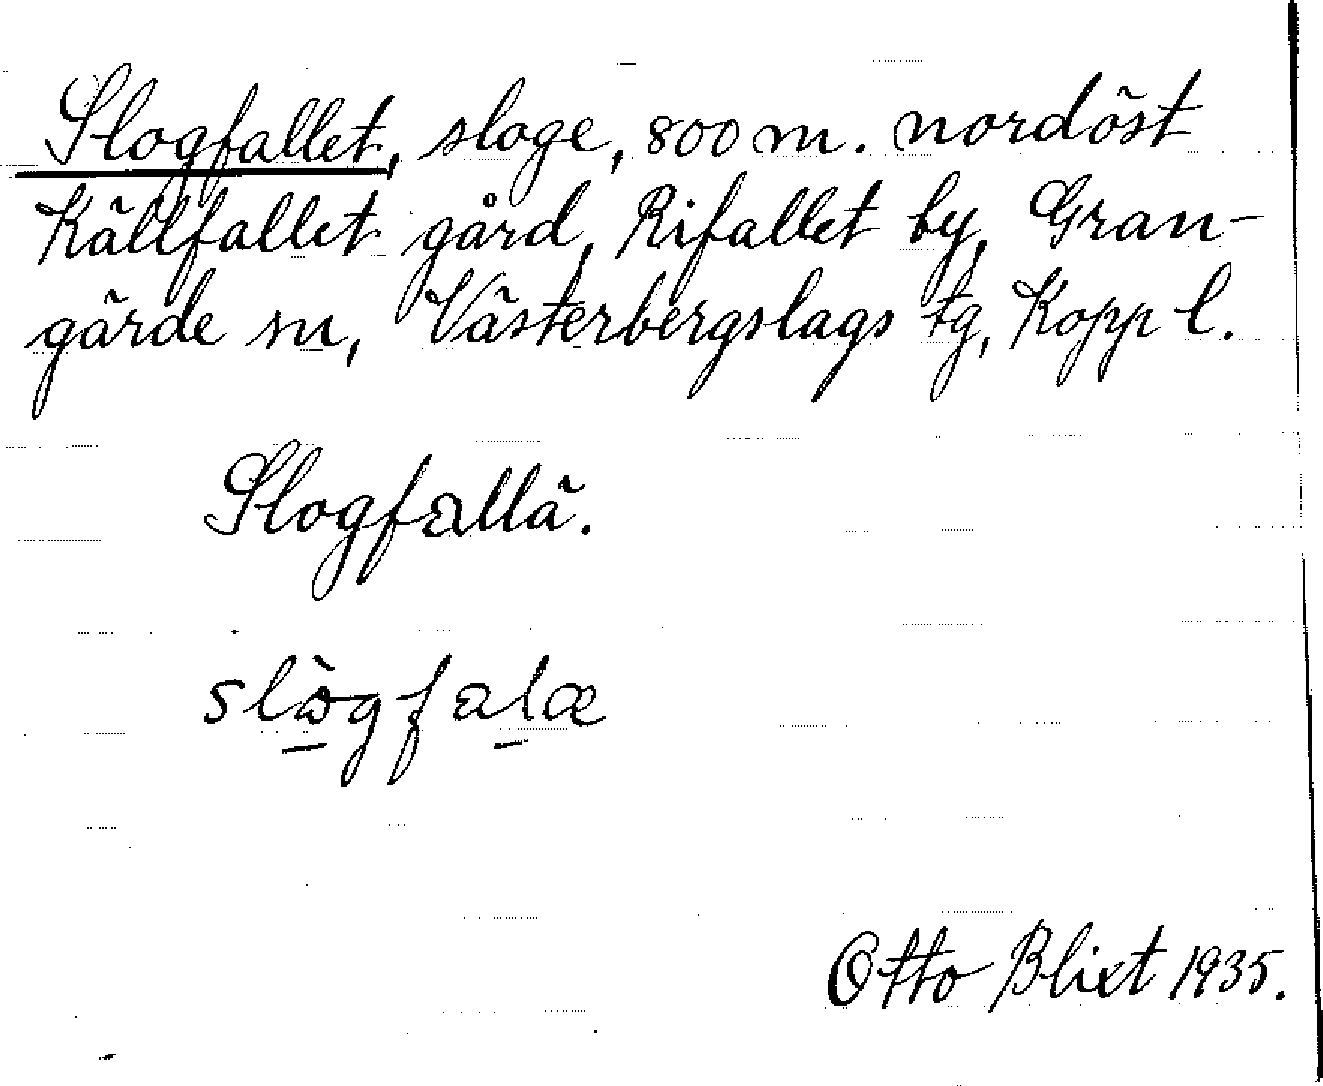 Slogfallet, sloge, 800 m. nordöst
Källfallet gård, Rifallet by, Gran-
gärde sn, Västerbergslags tg, Kopp l.
Slogfallä.
slògfalæ
Otto Blixt 1935.